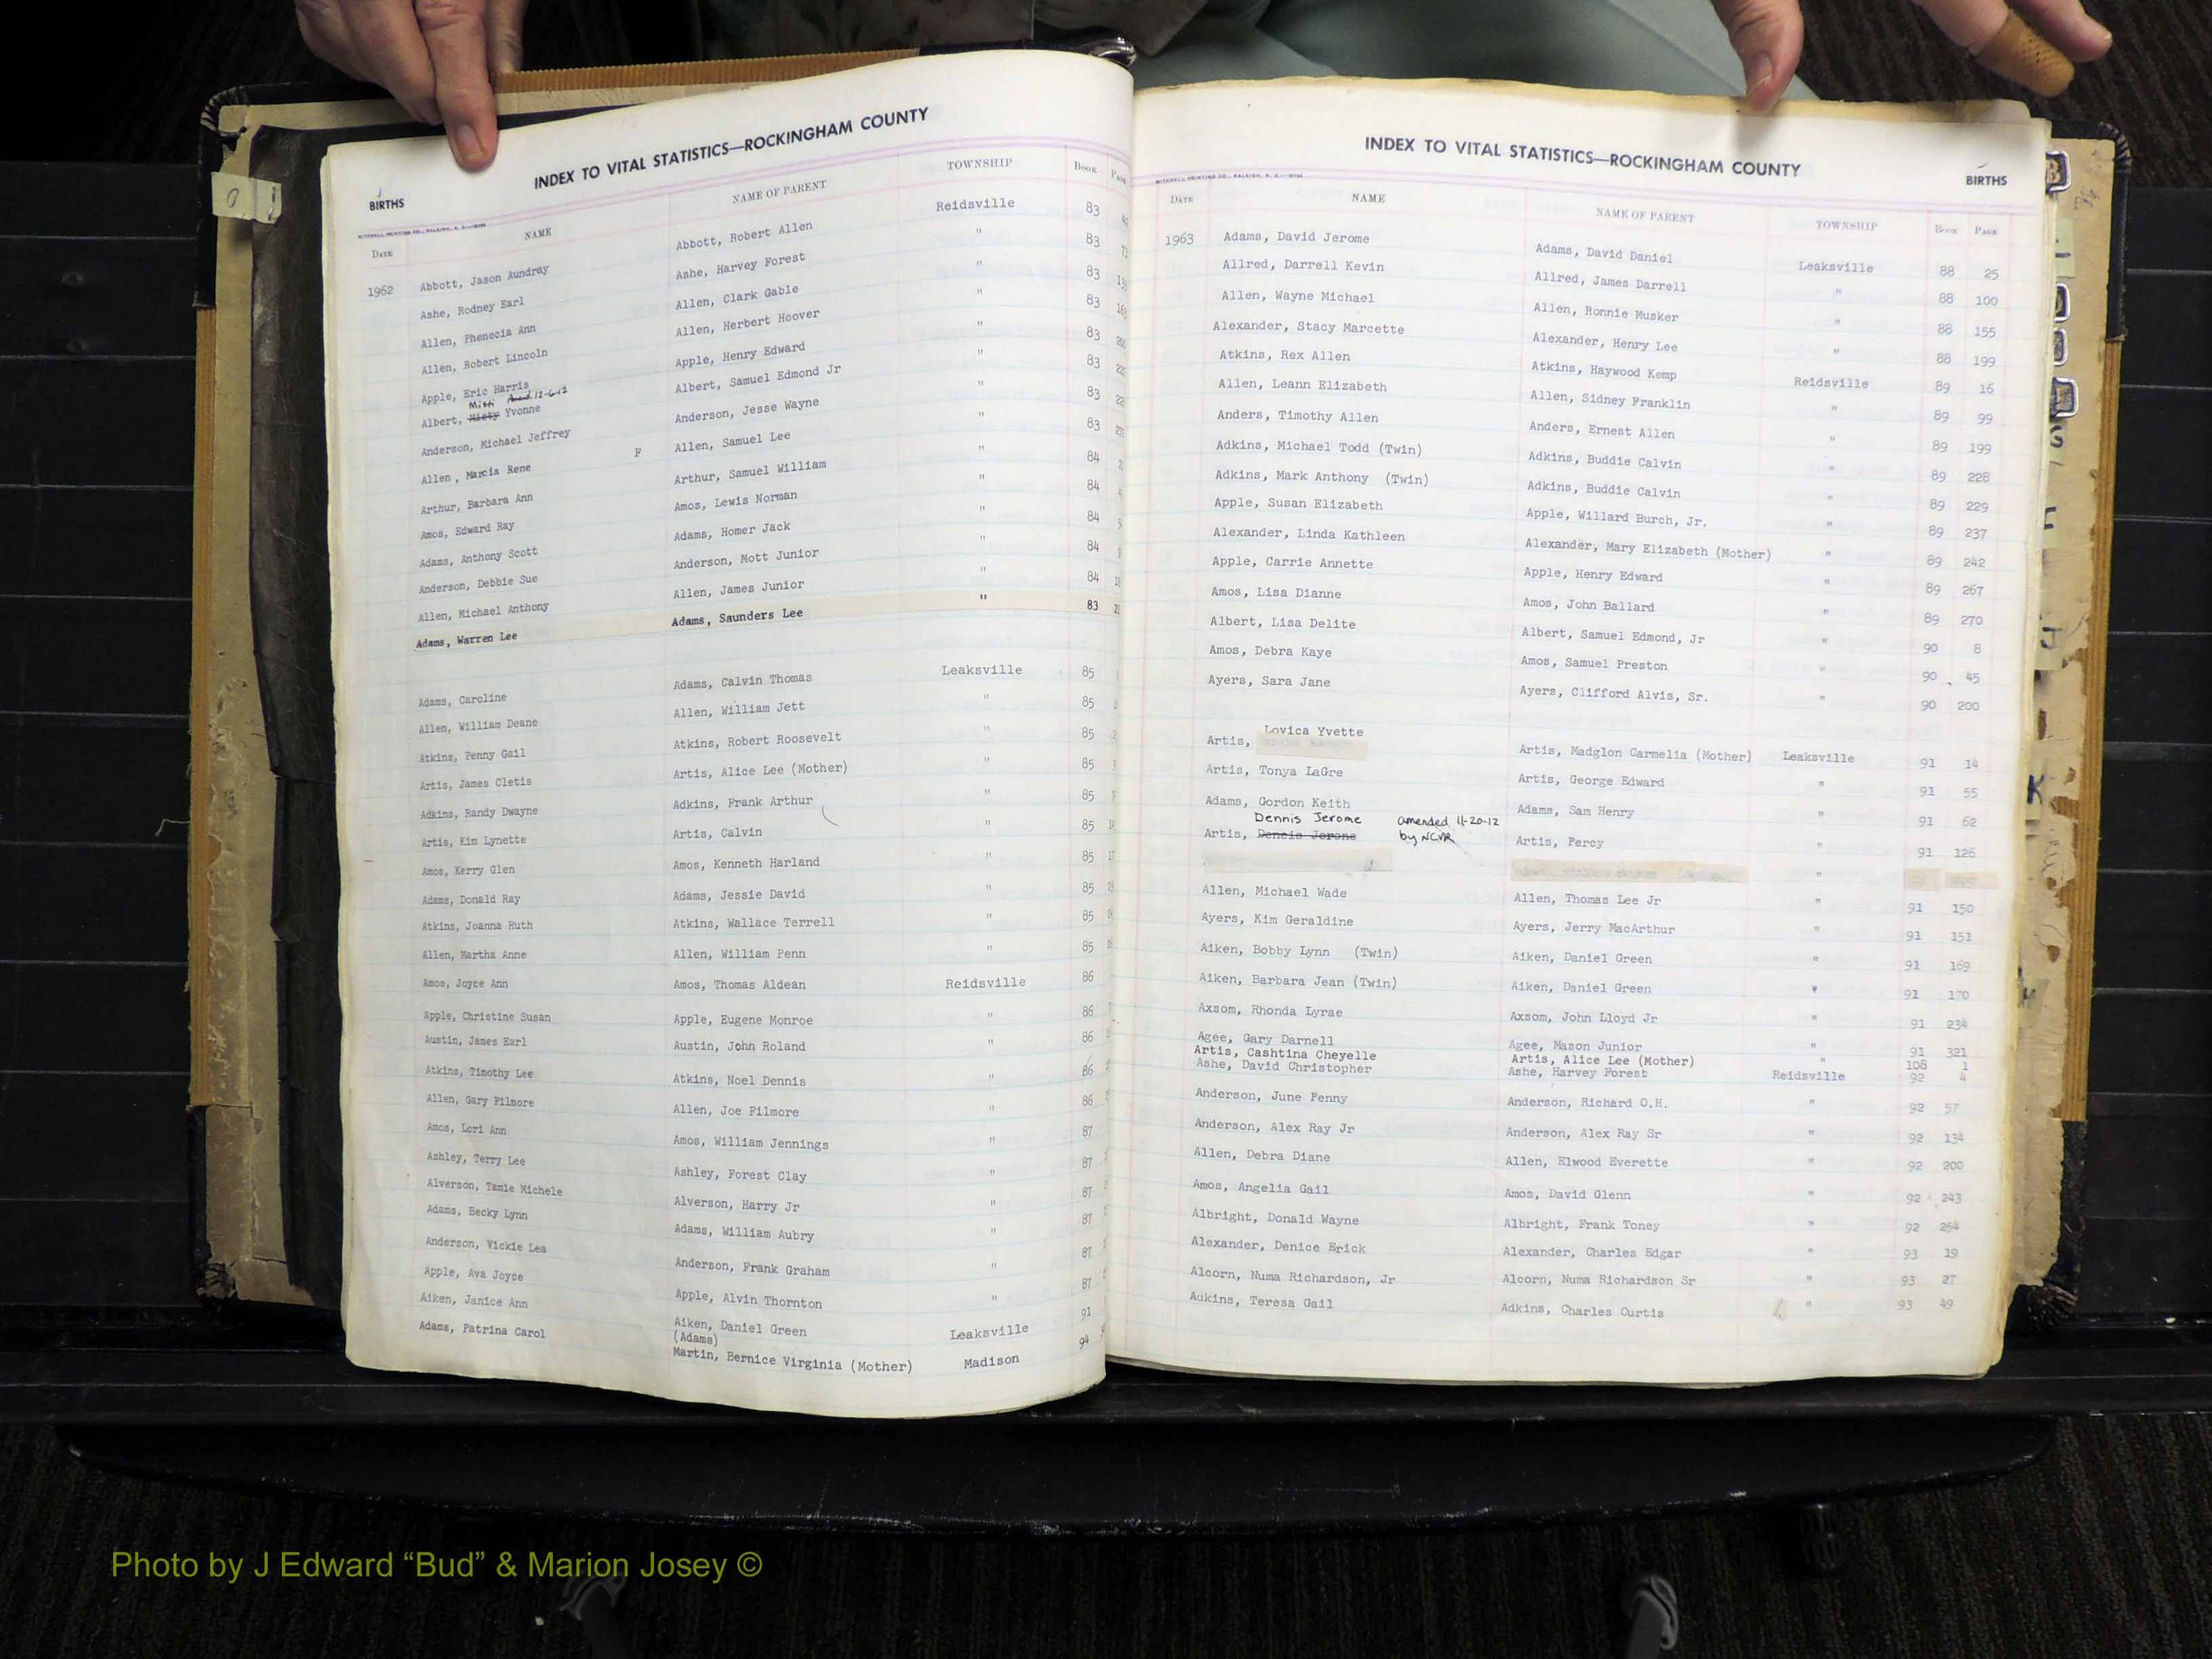 INDEX TO VITAL STATISTICS—ROCKINGHAM COUNTY
BIRTHS
DATE NAME NAME OF PARENT TOWNSHIP BOOK
1962 Abbott, Jason Aundray Abbott, Robert Allen Reidsville 83
Ashe, Rodney Earl Ashe, Harvey Forest " 83
Allen, Phenecia Ann Allen, Clark Gable " 83
Allen, Robert Lincoln Allen, Herbert Hoover " 83
Apple, Eric Harris Apple, Henry Edward " 83
Misti Amed. 12-6-12
Albert, Misty Yvonne Albert, Samuel Edmond Jr " 83
Anderson, Michael Jeffrey Anderson, Jesse Wayne " 83
Allen, Marcia Rene F Allen, Samuel Lee " 83
Arthur, Barbara Ann Arthur, Samuel William " 84
Amos, Edward Ray Amos, Lewis Norman " 84
Adams, Anthony Scott Adams, Homer Jack " 84
Anderson, Debbie Sue Anderson, Mott Junior " 84
Allen, Michael Anthony Allen, James Junior " 84
Adams, Warren Lee Adams, Saunders Lee " 83
Adams, Caroline Adams, Calvin Thomas Leaksville 85
Allen, William Deane Allen, William Jett " 85
Atkins, Penny Gail Atkins, Robert Roosevelt " 85
Artis, James Cletis Artis, Alice Lee (Mother) " 85
Adkins, Randy Dwayne Adkins, Frank Arthur " 85
Artis, Kim Lynette Artis, Calvin " 85
Amos, Kerry Glen Amos, Kenneth Harland " 85
Adams, Donald Ray Adams, Jessie David " 85
Atkins, Joanna Ruth Atkins, Wallace Terrell " 85
Allen, Martha Anne Allen, William Penn " 85
Amos, Joyce Ann Amos, Thomas Aldean Reidsville 86
Apple, Christine Susan Apple, Eugene Monroe " 86
Austin, James Earl Austin, John Roland " 86
Atkins, Timothy Lee Atkins, Noel Dennis " 86
Allen, Gary Filmore Allen, Joe Filmore " 86
Amos, Lori Ann Amos, William Jennings " 87
Ashley, Terry Lee Ashley, Forest Clay " 87
Alverson, Tamie Michele Alverson, Harry Jr " 87
Adams, Becky Lynn Adams, William Aubry " 87
Anderson, Vickie Lea Anderson, Frank Graham " 87
Apple, Ava Joyce Apple, Alvin Thornton " 87
Aiken, Janice Ann Aiken, Daniel Green Leaksville 91
(Adams)
Adams, Patrina Carol Martin, Bernice Virginia (Mother) Madison 94
INDEX TO VITAL STATISTICS—ROCKINGHAM COUNTY
BIRTHS
MITCHELL PRINTING CO., RALEIGH, N. C.
DATE NAME NAME OF PARENT TOWNSHIP BOOK PAGE
1963 Adams, David Jerome Adams, David Daniel Leaksville 88 25
Allred, Darrell Kevin Allred, James Darrell " 88 100
Allen, Wayne Michael Allen, Ronnie Musker " 88 155
Alexander, Stacy Marcette Alexander, Henry Lee " 88 199
Atkins, Rex Allen Atkins, Haywood Kemp Reidsville 89 16
Allen, Leann Elizabeth Allen, Sidney Franklin " 89 99
Anders, Timothy Allen Anders, Ernest Allen " 89 199
Adkins, Michael Todd (Twin) Adkins, Buddie Calvin " 89 228
Adkins, Mark Anthony (Twin) Adkins, Buddie Calvin " 89 229
Apple, Susan Elizabeth Apple, Willard Burch, Jr. " 89 237
Alexander, Linda Kathleen Alexander, Mary Elizabeth (Mother) " 89 242
Apple, Carrie Annette Apple, Henry Edward " 89 267
Amos, Lisa Dianne Amos, John Ballard " 89 270
Albert, Lisa Delite Albert, Samuel Edmond, Jr " 90 8
Amos, Debra Kaye Amos, Samuel Preston " 90 45
Ayers, Sara Jane Ayers, Clifford Alvis, Sr. " 90 200
Lovica Yvette
Artis, Artis, Madglon Carmelia (Mother) Leaksville 91 14
Artis, Tonya LaGre Artis, George Edward " 91 55
Adams, Gordon Keith Adams, Sam Henry " 91 62
Dennis Jerome amended 11-20-12
Artis, Dencis Jerone by NCVR Artis, Percy " 91 126
"
Allen, Michael Wade Allen, Thomas Lee Jr " 91 150
Ayers, Kim Geraldine Ayers, Jerry MacArthur " 91 151
Aiken, Bobby Lynn (Twin) Aiken, Daniel Green " 91 169
Aiken, Barbara Jean (Twin) Aiken, Daniel Green " 91 170
Axsom, Rhonda Lyrae Axsom, John Lloyd Jr " 91 234
Agee, Gary Darnell Agee, Mason Junior " 91 321
Artis, Cashtina Cheyelle Artis, Alice Lee (Mother) " 108 1
Ashe, David Christopher Ashe, Harvey Forest Reidsville 92 4
Anderson, June Penny Anderson, Richard O.H. " 92 57
Anderson, Alex Ray Jr Anderson, Alex Ray Sr " 92 134
Allen, Debra Diane Allen, Elwood Everette " 92 200
Amos, Angelia Gail Amos, David Glenn " 92 243
Albright, Donald Wayne Albright, Frank Toney " 92 254
Alexander, Denice Erick Alexander, Charles Edgar " 93 19
Alcorn, Numa Richardson, Jr Alcorn, Numa Richardson Sr " 93 27
Adkins, Teresa Gail Adkins, Charles Curtis " 93 49
Photo by J Edward “Bud” & Marion Josey ©